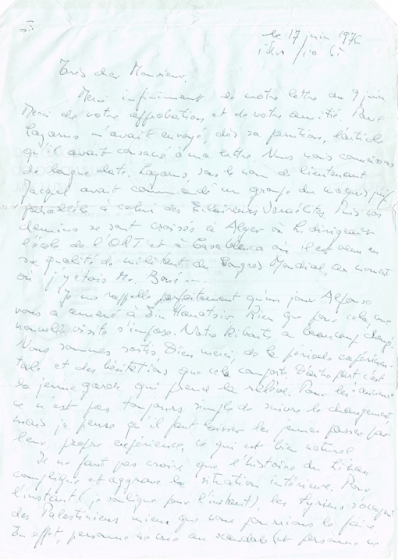 le 17 juin 1976
Très cher Monsieur,
Merci infiniment de votre lettre du 9 juin
Merci de votre approbation et de votre amitié. Paul
Lazarus m'avait envoyé, dès sa parution, l'article
qu'il avait consacré à ma lettre. Nous nous connaissons
de longue date. Lazarus, sous le nom de lieutenant
Jacquel avait commandé un groupe du maquis juif
parallèle à celui des Eclaireurs Israélites. Puis nos
chemins se sont croisés à Alger où il dirigeait
l'école de l'ORT et à Casablanca où il est venu en
sa qualité de du Congrès Mondial, au moment
où j'y étais
Je me rappelle parfaitement qu'un jour Alfonso
vous a amené à Ein Hanatsiv. Rien que pour cela une
nouvelle visite s'impose. Notre kibouts a beaucoup changé.
Nous sommes sortis Dieu merci, de la période expérimen-
tale et des hésitations que cela comporte. D'autre part c'est
la jeune garde qui prend la relève. Pour les anciens
ce n'est pas toujours simple de suivre le changement
mais je pense qu'il faut laisser les jeunes passer par
leur propre expérience, ce qui est bien naturel.
Il ne faut pas croire que l'histoire du Liban
complique et aggrave la situation intérieure. Pour
l'instant (je souligne pour l'instant), les syriens s'occupent
des Palestiniens mieux que nous pourrions le faire.
En effet, personne ne crie au scandale (et personne ne